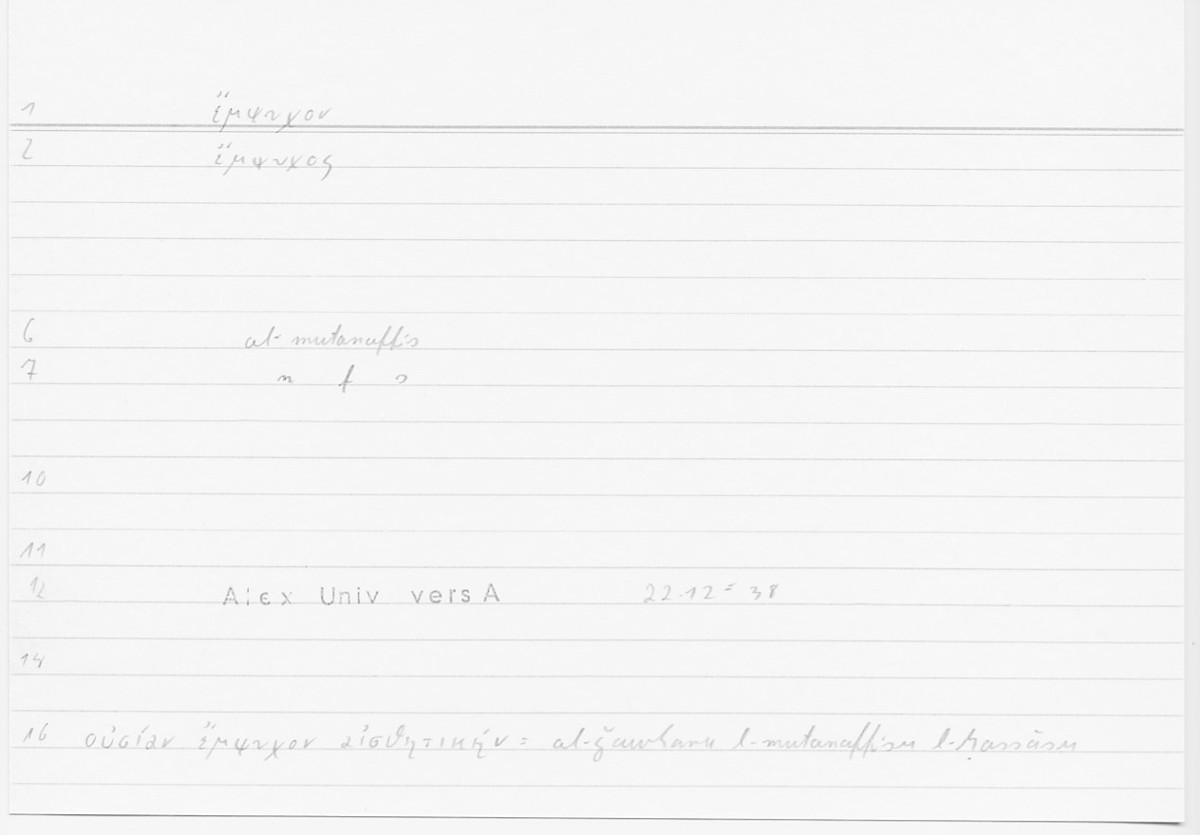 1 ἔμψυχον
2 ἔμψυχος
6 al-mutanaffis
7 n f s
10
11
12 Alex Univ vers A 22.12 = 38
14
16 οὐσίαν ἔμψυχον αἰσθητικήν = al-ǧawharu l-mutanaffisu l-ḥassāsu